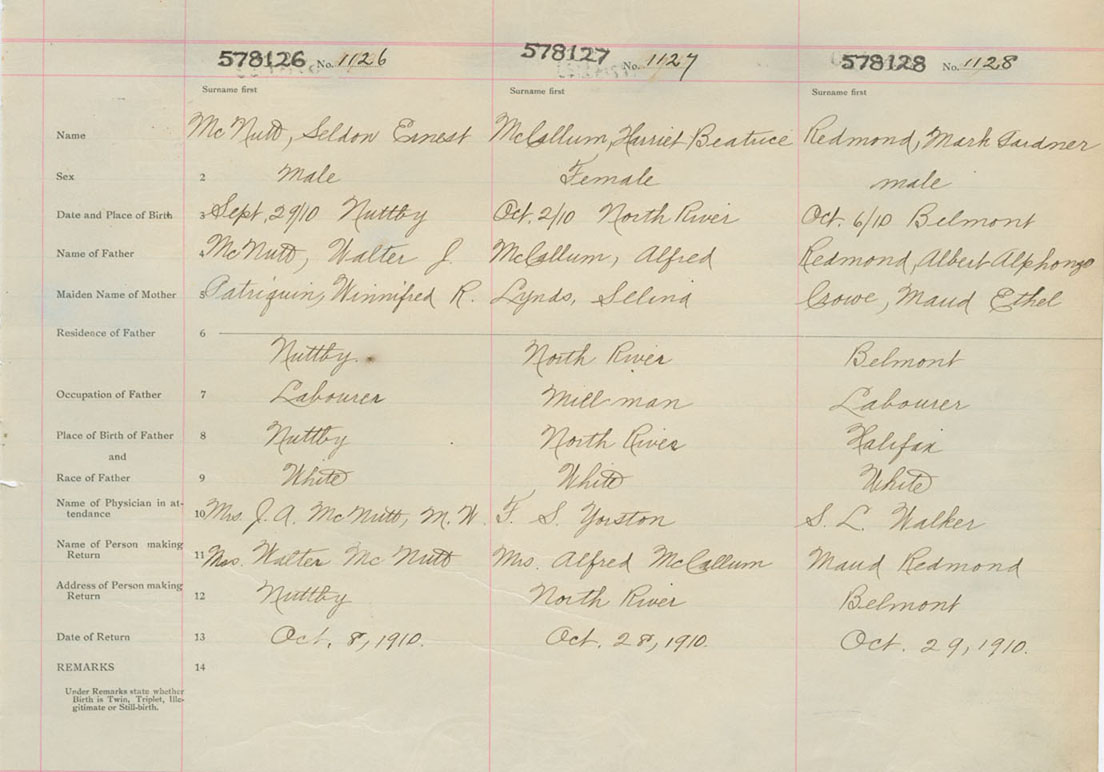 578126 No. 1126 578127 No. 1127 578128 No. 1128
Surname first Surname first Surname first
Name McNutt, Seldon Ernest McCallum, Harriet Beatrice Redmond, Mark Gardner
Sex 2 Male Female male
Date and Place of Birth 3 Sept, 29/10 Nuttby Oct. 2/10 North River Oct. 6/10 Belmont
Name of Father 4 McNutt, Walter J. McCallum, Alfred Redmond, Albert Alphonzo
Maiden Name of Mother 5 Patriquin, Winnifred R. Lynds, Selina Crowe, Maud Ethel
Residence of Father 6
Nuttby. North River Belmont
Occupation of Father 7 Labourer Mill man Labourer
Place of Birth of Father 8 Nuttby North River Halifax
and
Race of Father 9 White White White
Name of Physician in at-
tendance 10 Mrs. J. A. McNutt, M. W. F. S. Yorston S. L. Walker
Name of Person making
Return 11 Mrs. Walter McNutt Mrs. Alfred McCallum Maud Redmond
Address of Person making
Return 12 Nuttby North River Belmont
Date of Return 13 Oct. 8, 1910. Oct. 28, 1910. Oct. 29, 1910.
REMARKS 14
Under Remarks state whether
Birth is Twin, Triplet, Ille-
gitimate or Still-birth.